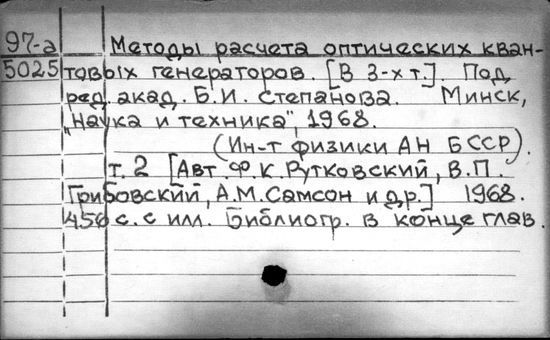 97-а Методы расчета оптических кван-
5025 товых генераторов. [В 3-х т.]. Под
ред. акад. Б.И. Степанова. Минск,
„Наука и техника", 1968.
(Ин-т физики АН БССР).
т. 2 [Авт. Ф.К. Рутковский, В.П.
Грибовский, А.М. Самсон и др.] 1968.
456 с. с илл. Библиогр. в конце глав.